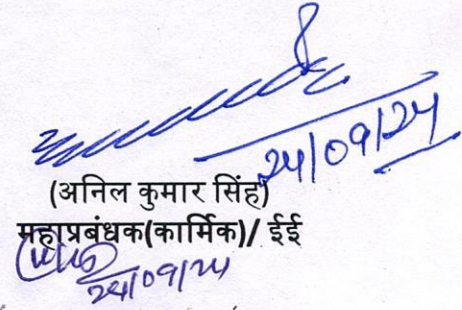 24/09/24
(अनिल कुमार सिंह)
महाप्रबंधक(कार्मिक)/ ईई
24/09/24